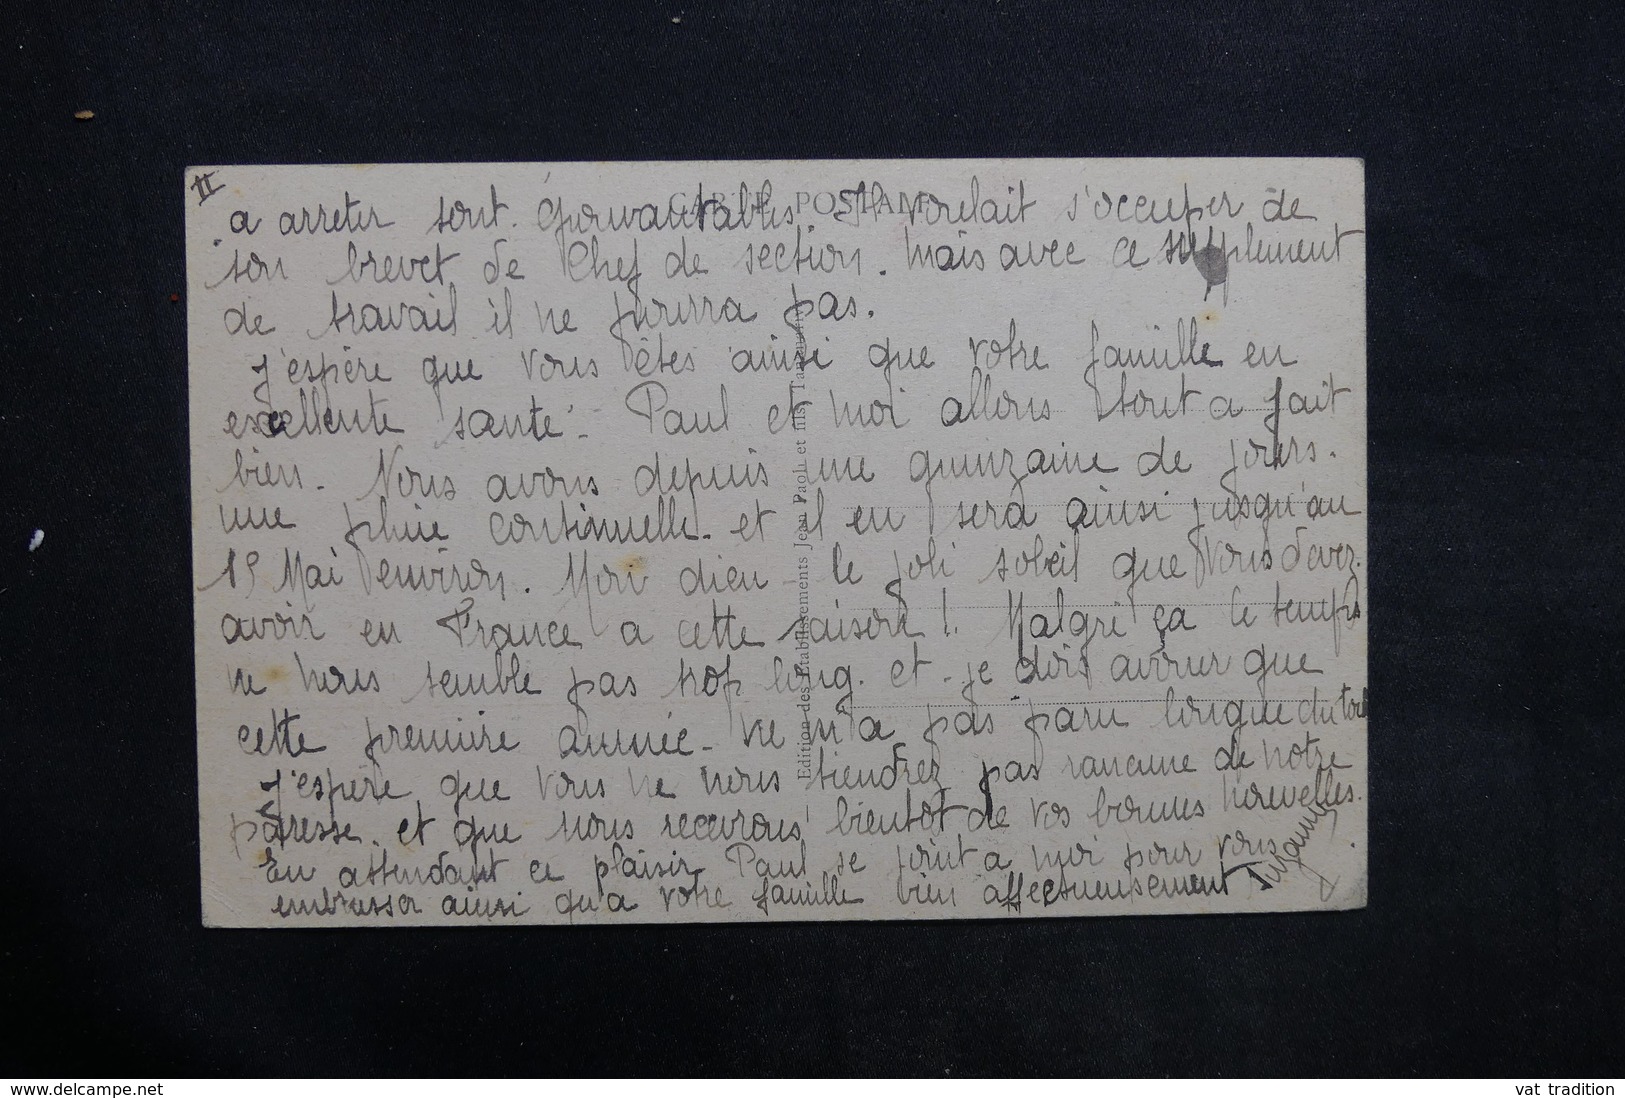 II
a arreter sont épouvantables. Il voulait s'occuper de
son brevet de Chef de section. Mais avec ce supplement
de travail il ne pourra pas.
J'espère que vous êtes ainsi que votre famille en
excellente santé. Paul et moi allons tout a fait
bien. Nous avons depuis une quinzaine de jours.
une pluie continuelle. et il en sera ainsi jusqu'au
15 Mai environ. Mon dieu le joli soleil que vous devez
avoir en France a cette saison !. Malgré ça le temps
ne nous semble pas trop long. et je dois avouer que
cette première année ne m'a pas paru longue du tout
J'espère que vous ne nous tiendrez pas rancune de notre
paresse. et que nous recevrons bientot de vos bonnes nouvelles.
En attendant ce plaisir Paul se joint a moi pour vous
embrasser ainsi qu'a votre famille bien affectueusement
Suzanne
CARTE POSTALE
Edition des Etablissements Jean Paoli et fils
delcampe.net
vat tradition